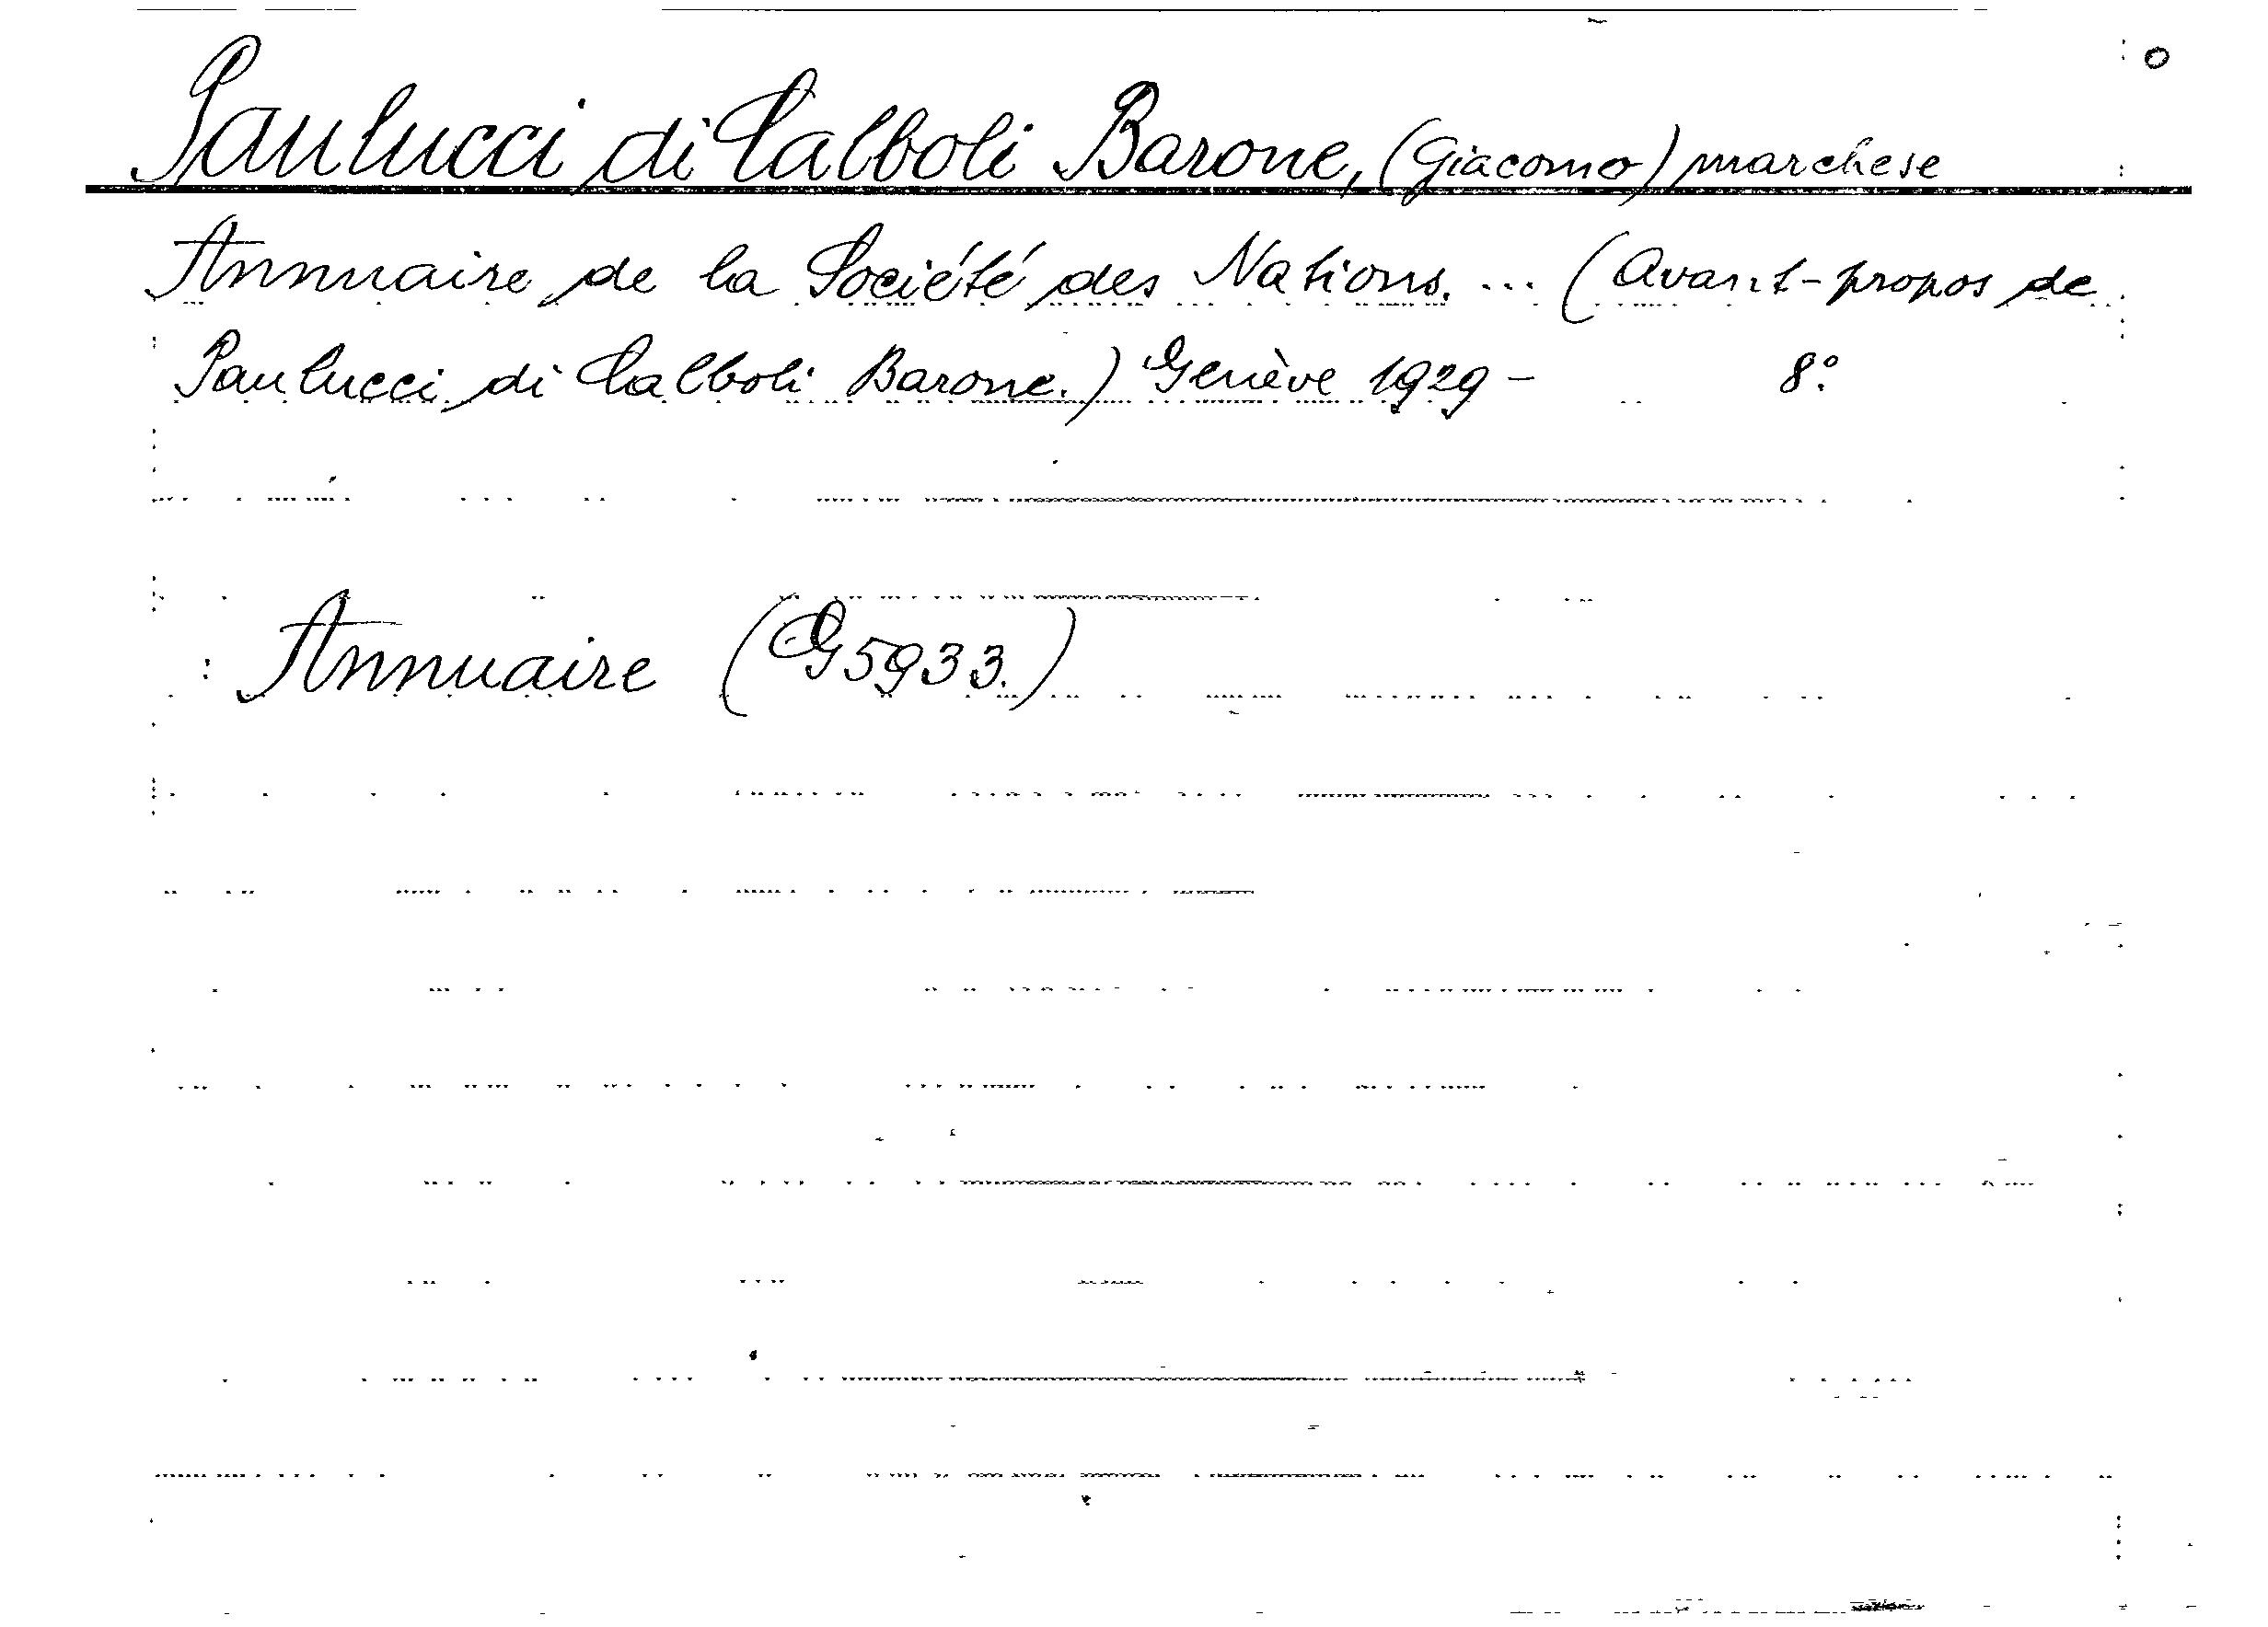 Paulucci di Calboli Barone, (Giacomo) marchese
Annuaire de la Société des Nations. ... (Avant-propos de
Paulucci di Calboli Barone.) Genève 1929 - 8º.
Annuaire (G5933.)